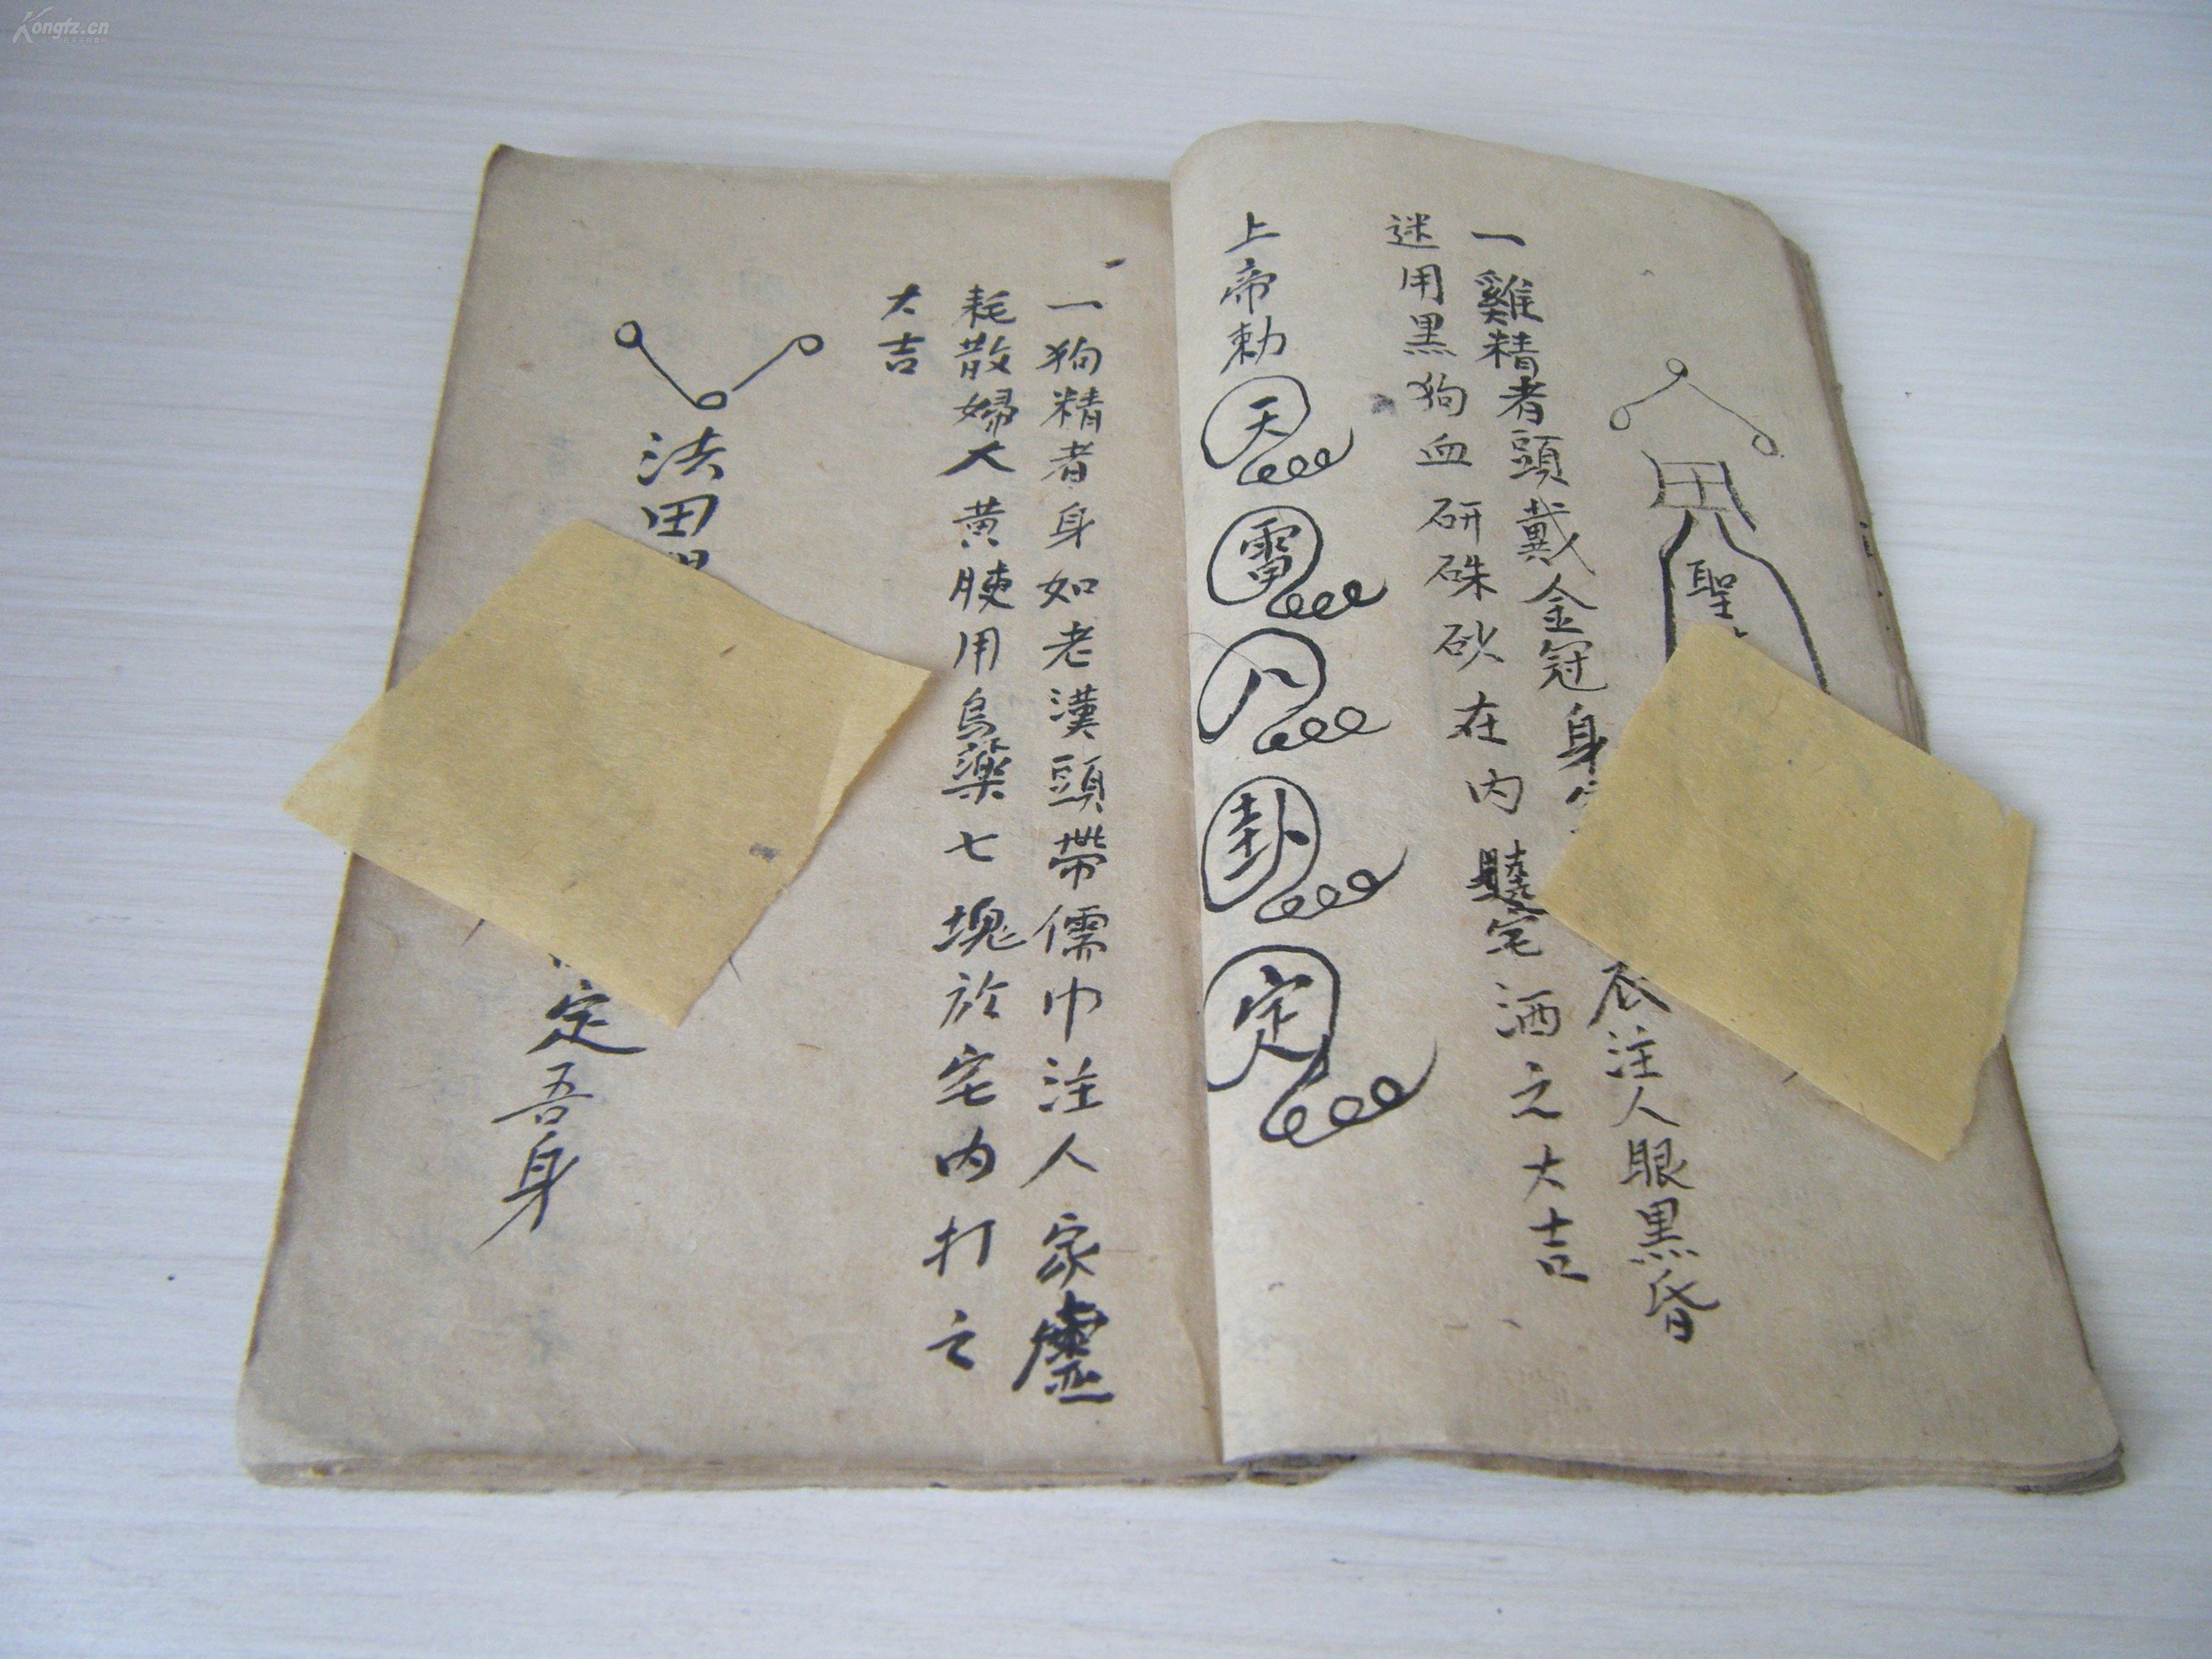 Kongfz.cn
聖
一雞精者頭戴金冠身
衣注人眼黑昏
迷用黑狗血研硃砂在內
宅洒之大吉
上帝勅
天
雷
八
卦
定
一狗精者身如老漢頭帶儒巾注人家虛
耗散婦人黃腫用烏藥七塊於宅內打之
大吉
法田
定吾身